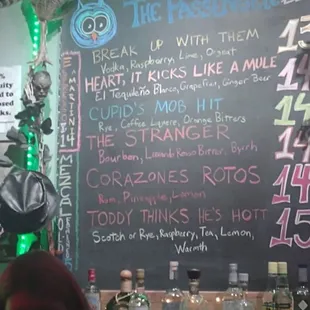 THE PASSENGER
BREAK UP WITH THEM
Vodka, Raspberry, Lime, Orgeat
HEART, IT KICKS LIKE A MULE
El Tequileño Blanco, Grapefruit, Ginger Beer
CUPID'S MOB HIT
Rye, Coffee Liquere, Orange Bitters
THE STRANGER
Bourbon, Byrrh
CORAZONES ROTOS
Rum, Pineapple, Lemon
TODDY THINKS HE'S HOTT
Scotch or Rye, Raspberry, Tea, Lemon,
Warmth
13
14
14
14
14
15
MARTINI
MEZCAL